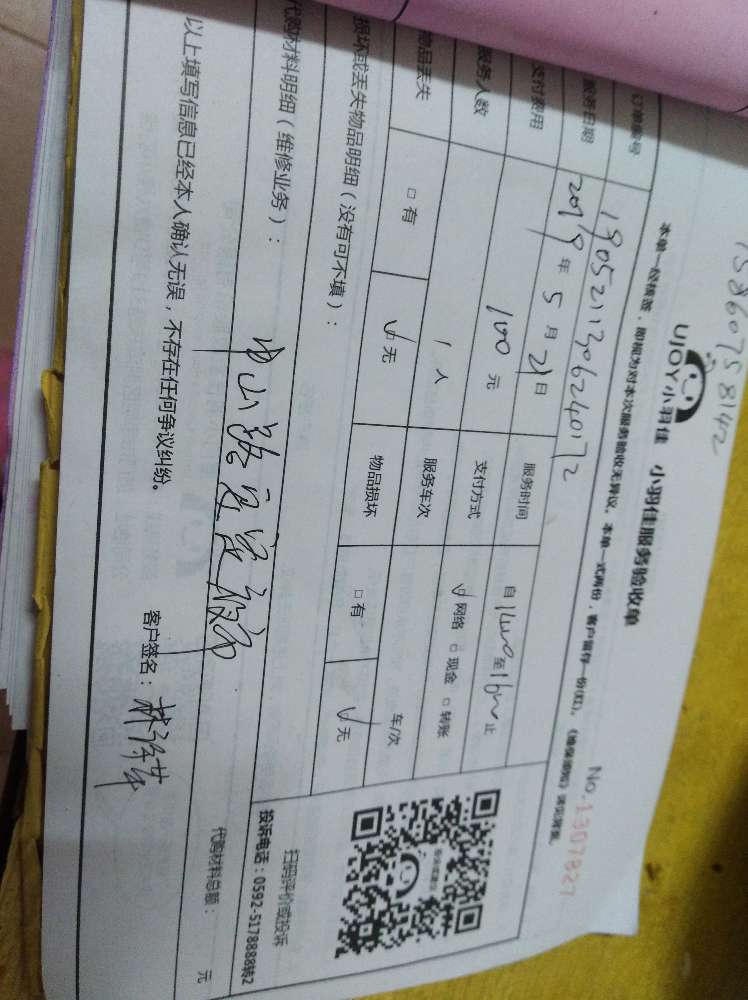 15860758142
UJOY小羽佳 小羽佳服务验收单
No.1307827
本单一经核签，即视为对本次服务验收无异议。本单一式两份，客户留存一份(红)。
订单编号 1905211306240172
服务日期 2019年5月21日 服务时间 自1400至1600止
支付费用 100元 支付方式 网络 □现金 □转账
服务人数 1人 服务车次 车/次
物品丢失 □有 无 物品损坏 □有 无
损坏或丢失物品明细（没有可不填）：
扫码评价或投诉
投诉电话：0592-5178888转2
代购材料明细（维修业务）：
中山路
代购材料总额： 元
以上填写信息已经本人确认无误，不存在任何争议纠纷。 客户签名：